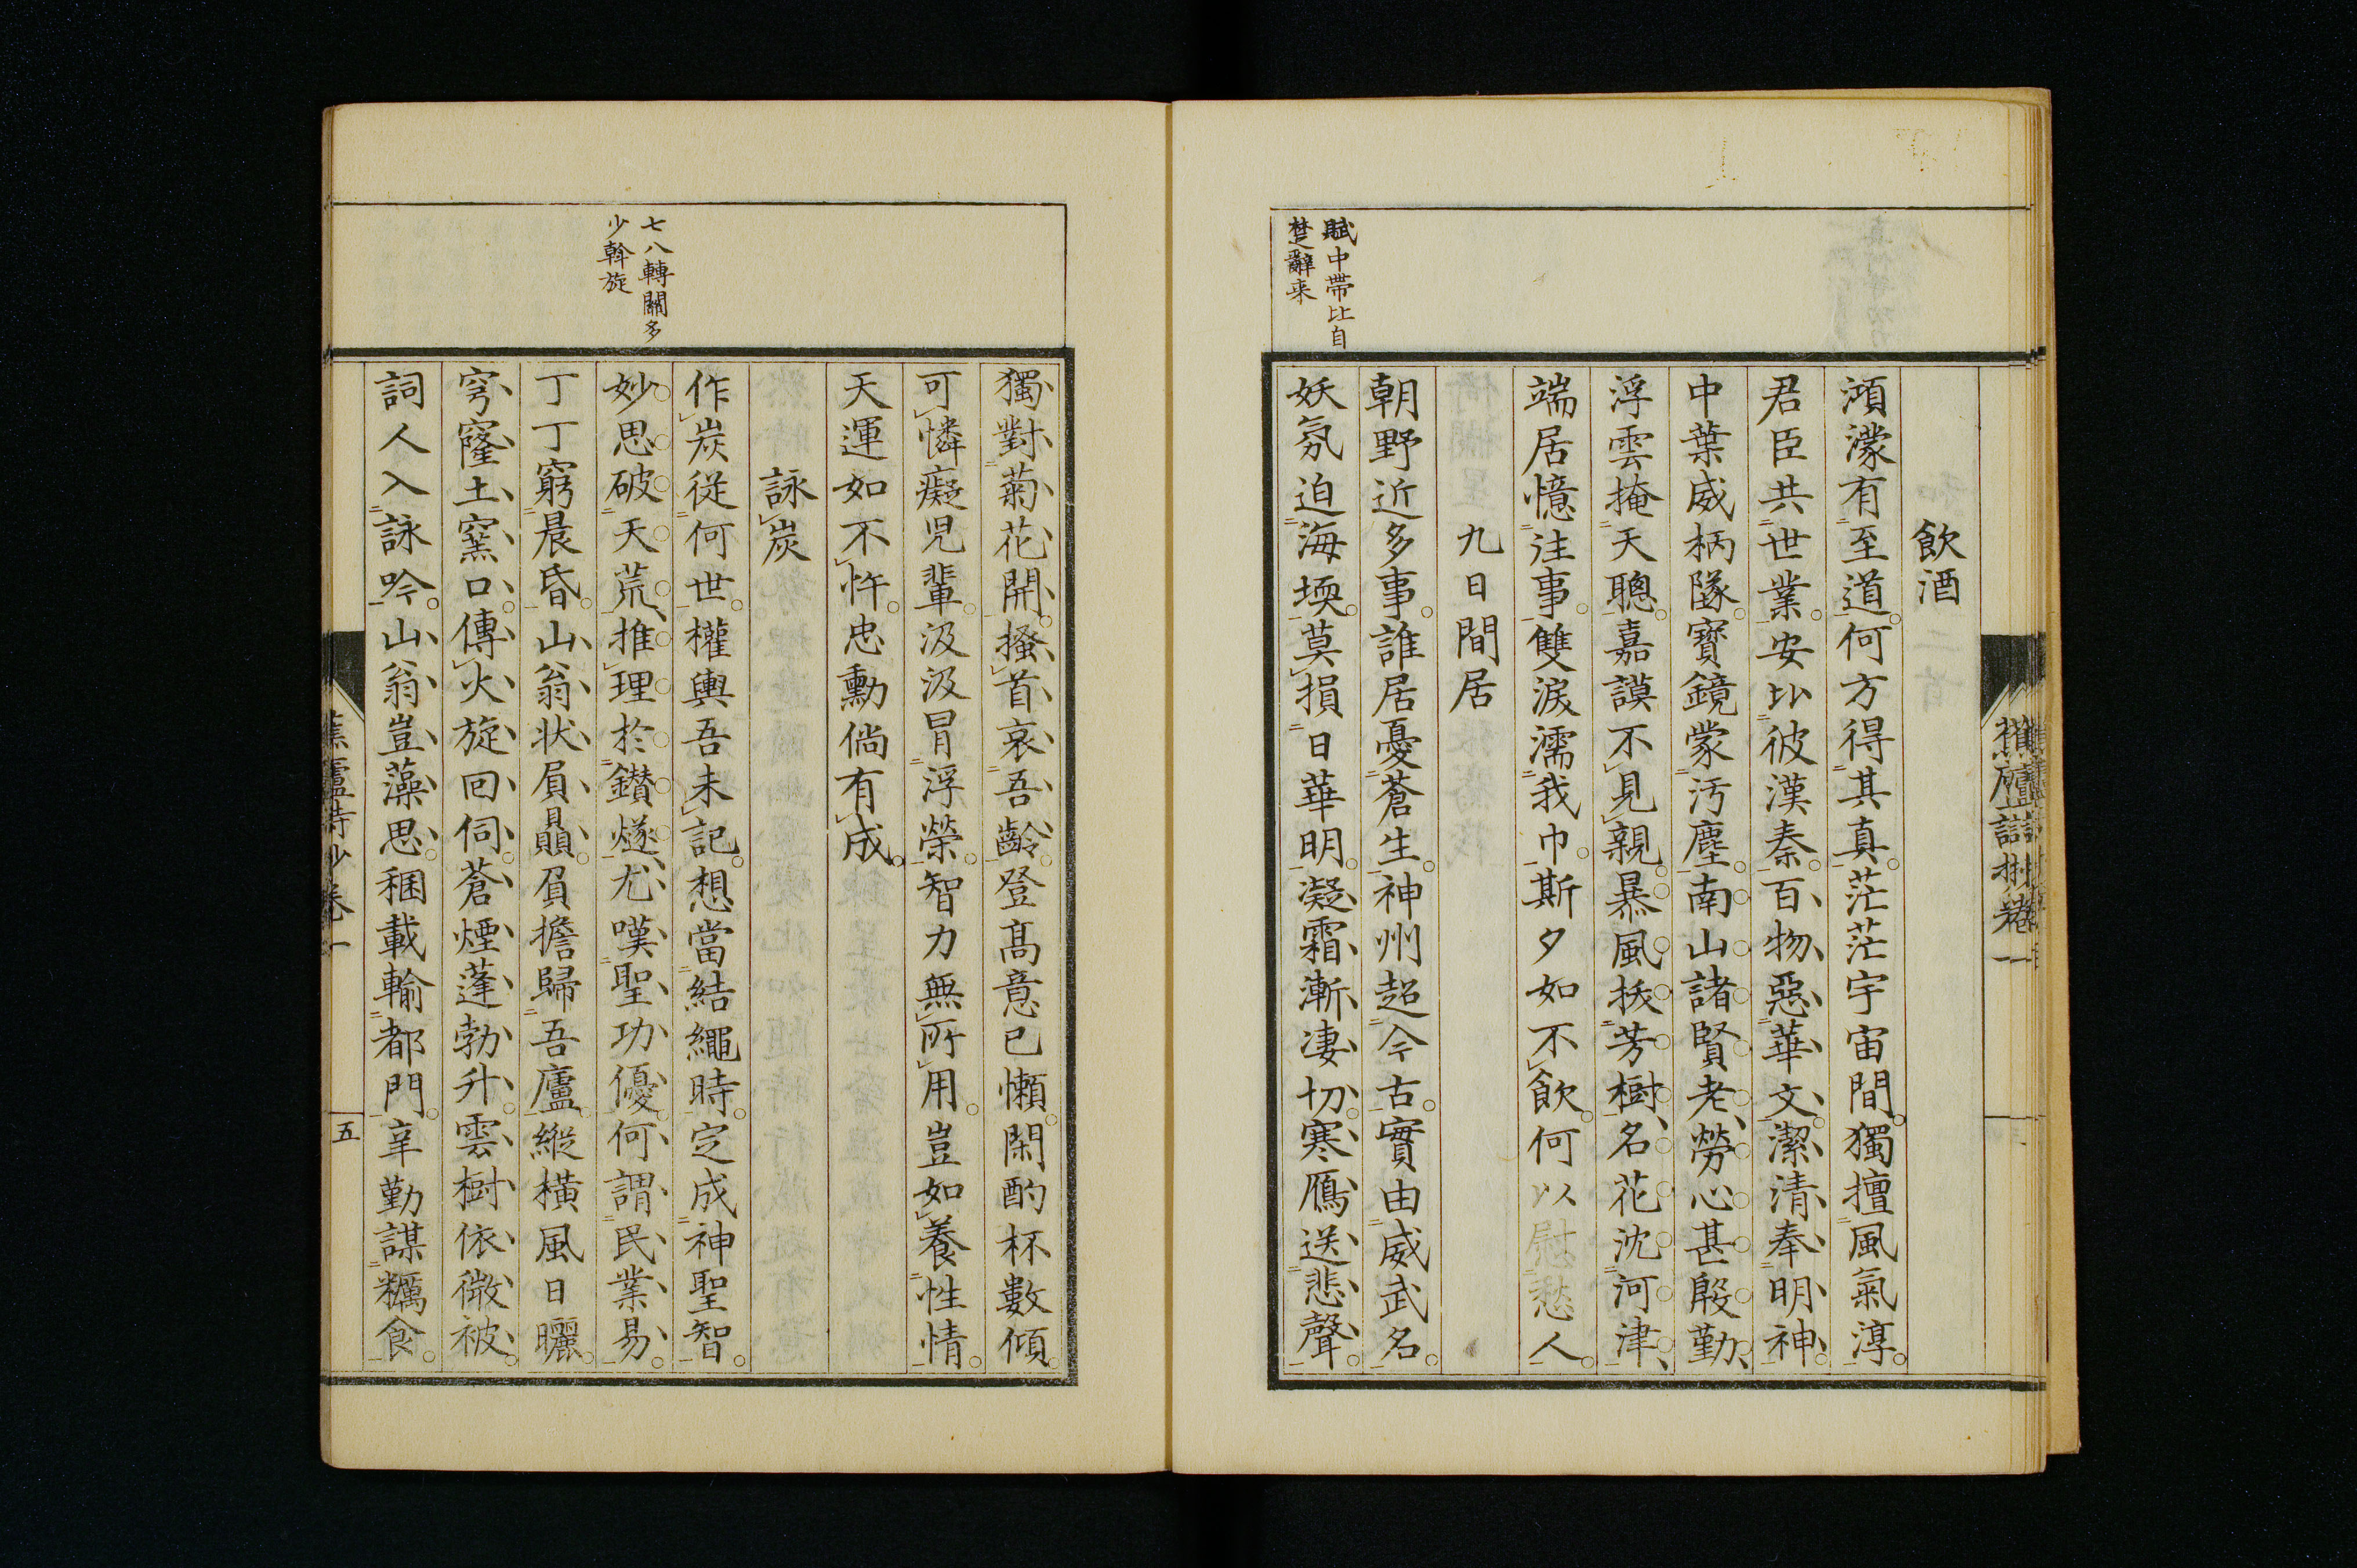 飲酒
澒濛有至道何方得其真茫茫宇宙間獨擅風氣淳
君臣共世業安比彼漢秦百物惡華文潔清奉明神
中葉威柄墜寶鏡蒙汚塵南山諸賢老勞心甚殷勤
浮雲掩天聰嘉謨不見親暴風拔芳樹名花沈河津
端居憶往事雙淚濡我巾斯夕如不飲何以慰愁人
九日閒居
賦中帶比自
楚辭来
朝野近多事誰居憂蒼生神州超今古實由威武名
妖氛迫海堧莫損日華明凝霜漸凄切寒鴈送悲聲
獨對菊花開搔首哀吾齡登髙意已懶閑酌杯數傾
可憐癡児輩汲汲冒浮榮智力無所用豈如養性情
天運如不忤忠勳倘有成
詠炭
作炭從何世權輿吾未記想當結繩時定成神聖智
七八轉關多
少斡旋
妙思破天荒推理於鑚燧尤嘆聖功優何謂民業易
丁丁窮晨昏山翁状屓贔負擔歸吾廬縱横風日曬
穹窿土窯口傳火旋回伺蒼煙蓬勃升雲樹依微被
詞人入詠吟山翁豈藻思稛載輸都門辛勤謀糲食
蕉廬詩鈔卷一
五